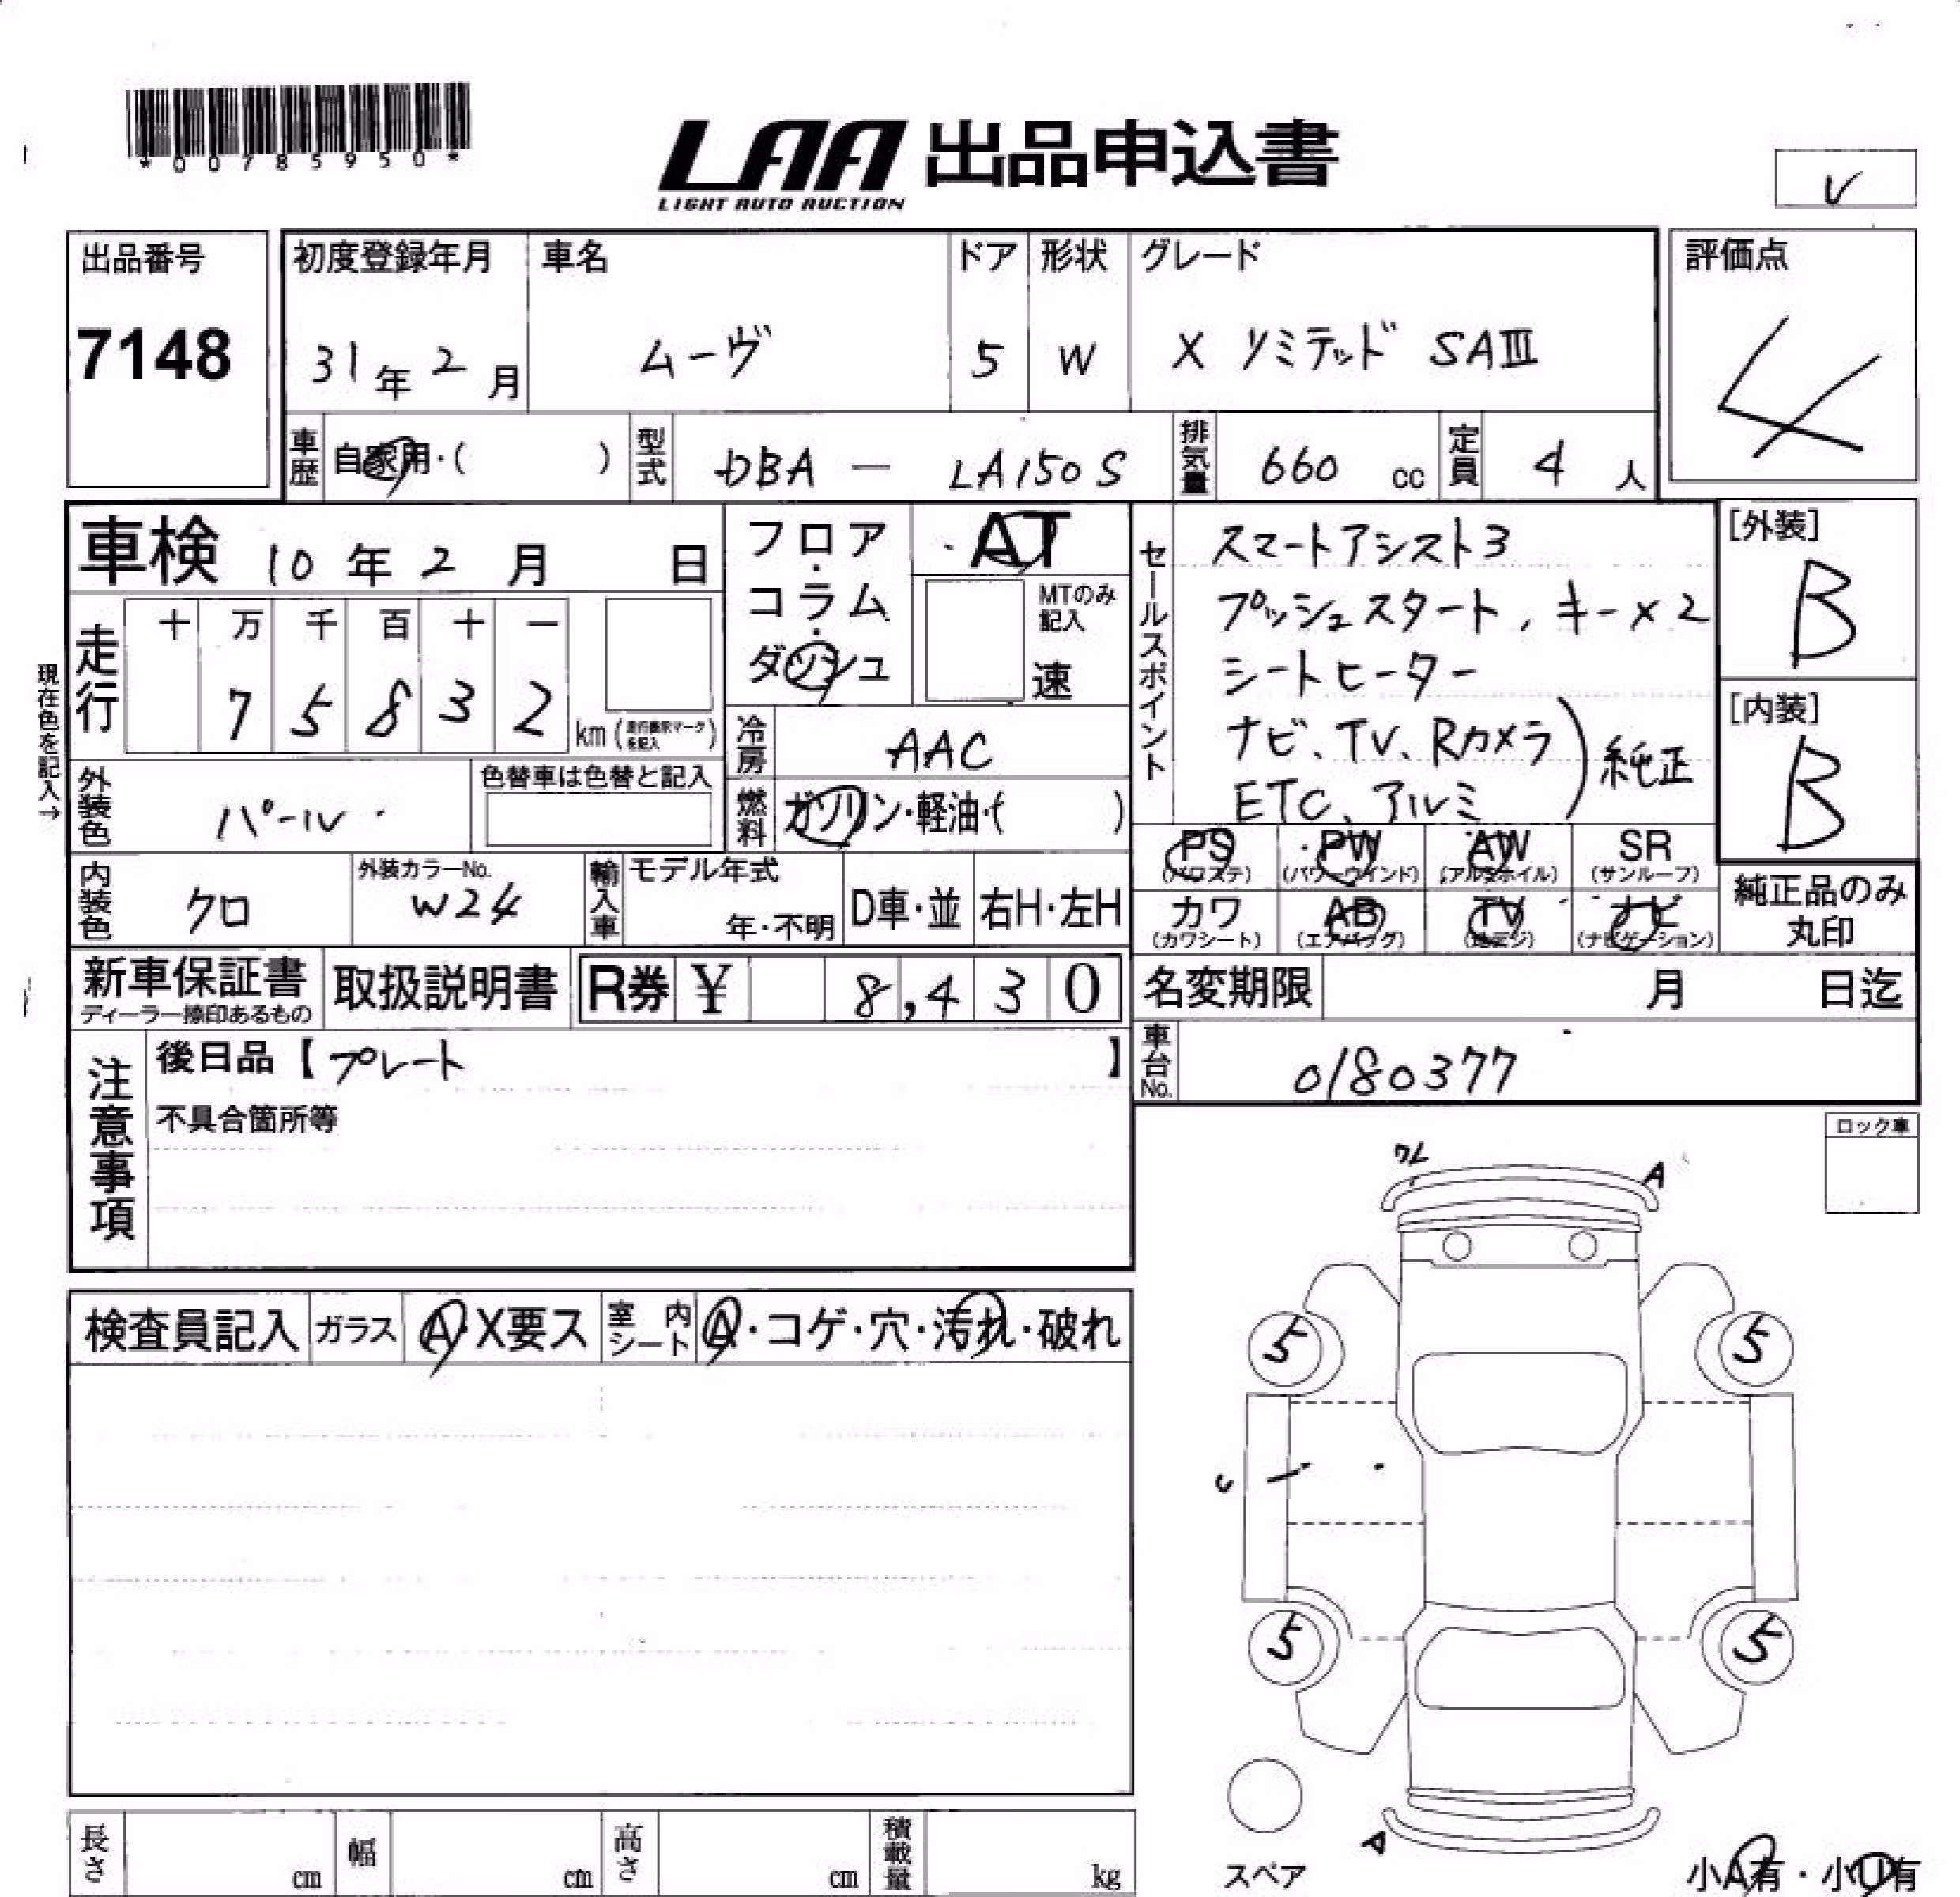 *00785950*
LAA 出品申込書
LIGHT AUTO AUCTION
V
出品番号
7148
初度登録年月
31年2月
車名
ムーヴ
ドア
5
形状
W
グレード
X リミテッド SAⅢ
評価点
4
車歴
自家用・( )
型式
DBA - LA150S
排気量
660 cc
定員
4 人
車検 10年2月 日
現在色を記入→
走行
十 万 千 百 十 一
7 5 8 3 2
km
フロア・コラム・ダッシュ
AT
MTのみ記入
速
冷房
AAC
燃料
ガソリン・軽油・( )
外装色
パール
色替車は色替と記入
内装色
クロ
外装カラーNo.
W24
輸入車
モデル年式
年・不明
D車・並
右H・左H
セールスポイント
スマートアシスト3
プッシュスタート、キー×2
シートヒーター
ナビ、TV、Rカメラ
ETC、アルミ
純正
[外装]
B
[内装]
B
PS
(パワステ)
PW
(パワーウインド)
AW
(アルミホイル)
SR
(サンルーフ)
カワ
(カワシート)
AB
(エアバッグ)
TV
(地デジ)
ナビ
(ナビゲーション)
純正品のみ
丸印
新車保証書
ディーラー捺印あるもの
取扱説明書
R券 ¥ 8,430
名変期限 月 日迄
車台No.
0180377
注意事項
後日品【プレート】
不具合箇所等
ロック車
検査員記入
ガラス
A・X要ス
室内シート
A・コゲ・穴・汚れ・破れ
A
5 5
C
5 5
A
スペア
小A有・小U有
長さ cm
幅 cm
高さ cm
積載量 kg